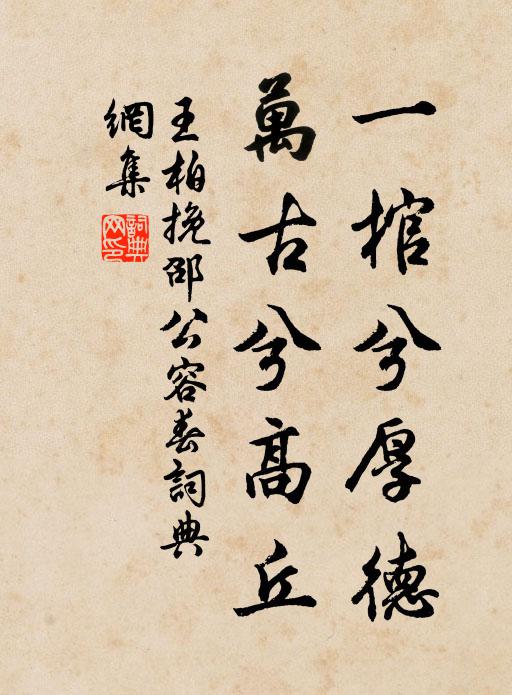 一棺兮厚德
萬古兮高丘
王柏挽邵公容春詞典
網集
詞典網印